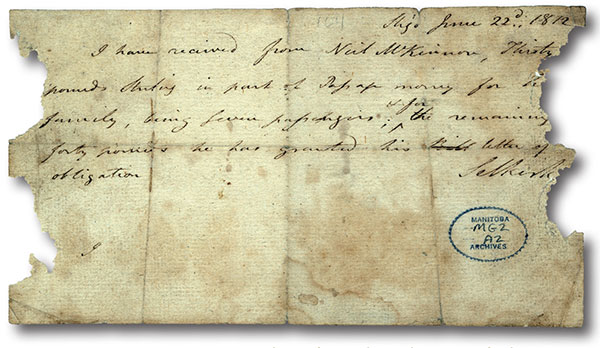 Sligo June 22d. 1812
I have recieved from Neil McKinnon, Thirty
pounds Sterling in part of Passage money for his
family, being Seven passengers; & for the remaining
forty pounds he has granted his letter of
obligation
Selkirk
MANITOBA
MG2
A2
ARCHIVES